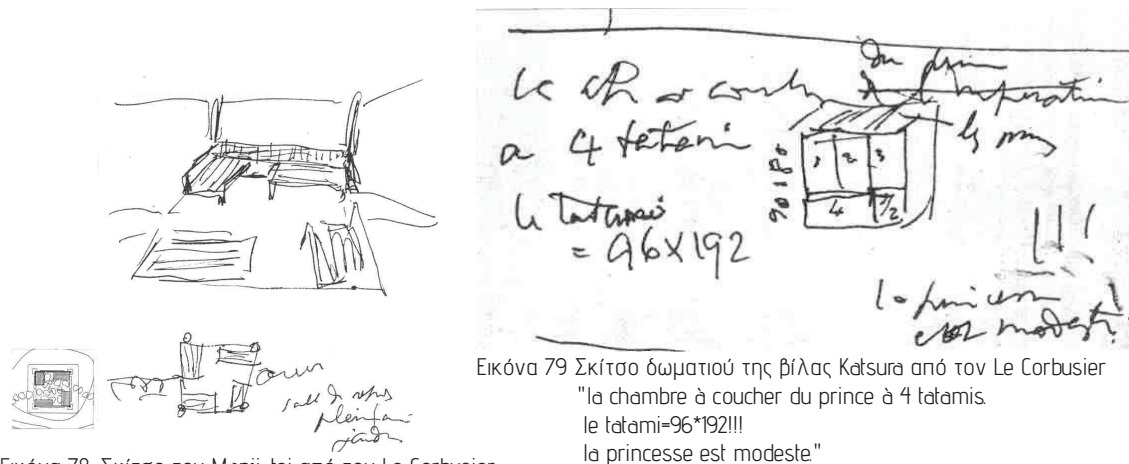 ouvert
salle de repos
plein air
jardin
Εικόνα 78 Σκίτσο του Manji-tei από τον Le Corbusier
la ch a couch
du prince
a 4 tatami
le tatami
= 96X192
90 180
1 2 3
4 1/2
!!!
la princesse
est modeste!
Εικόνα 79 Σκίτσο δωματιού της βίλας Katsura από τον Le Corbusier
"la chambre à coucher du prince à 4 tatamis.
le tatami=96*192!!!
la princesse est modeste."